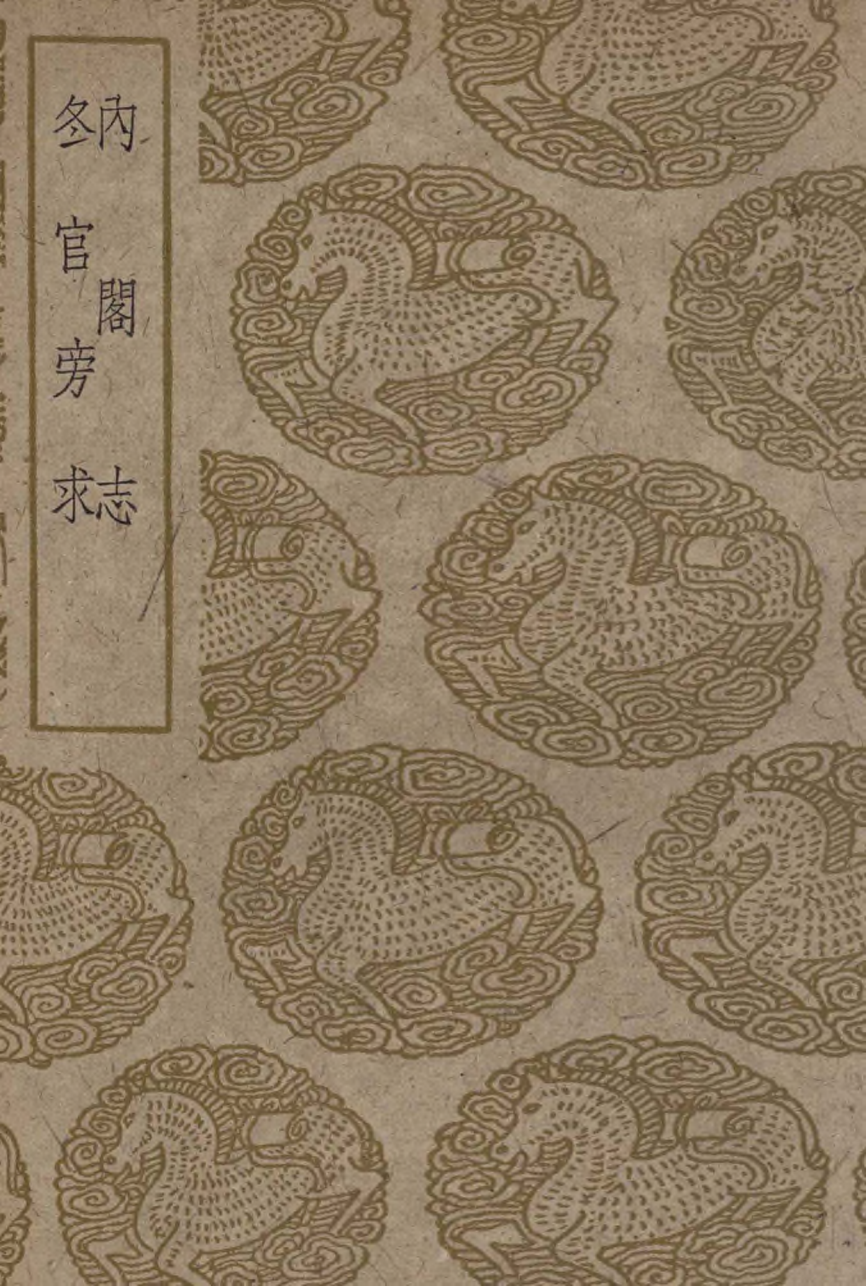 內閣志
冬官旁求